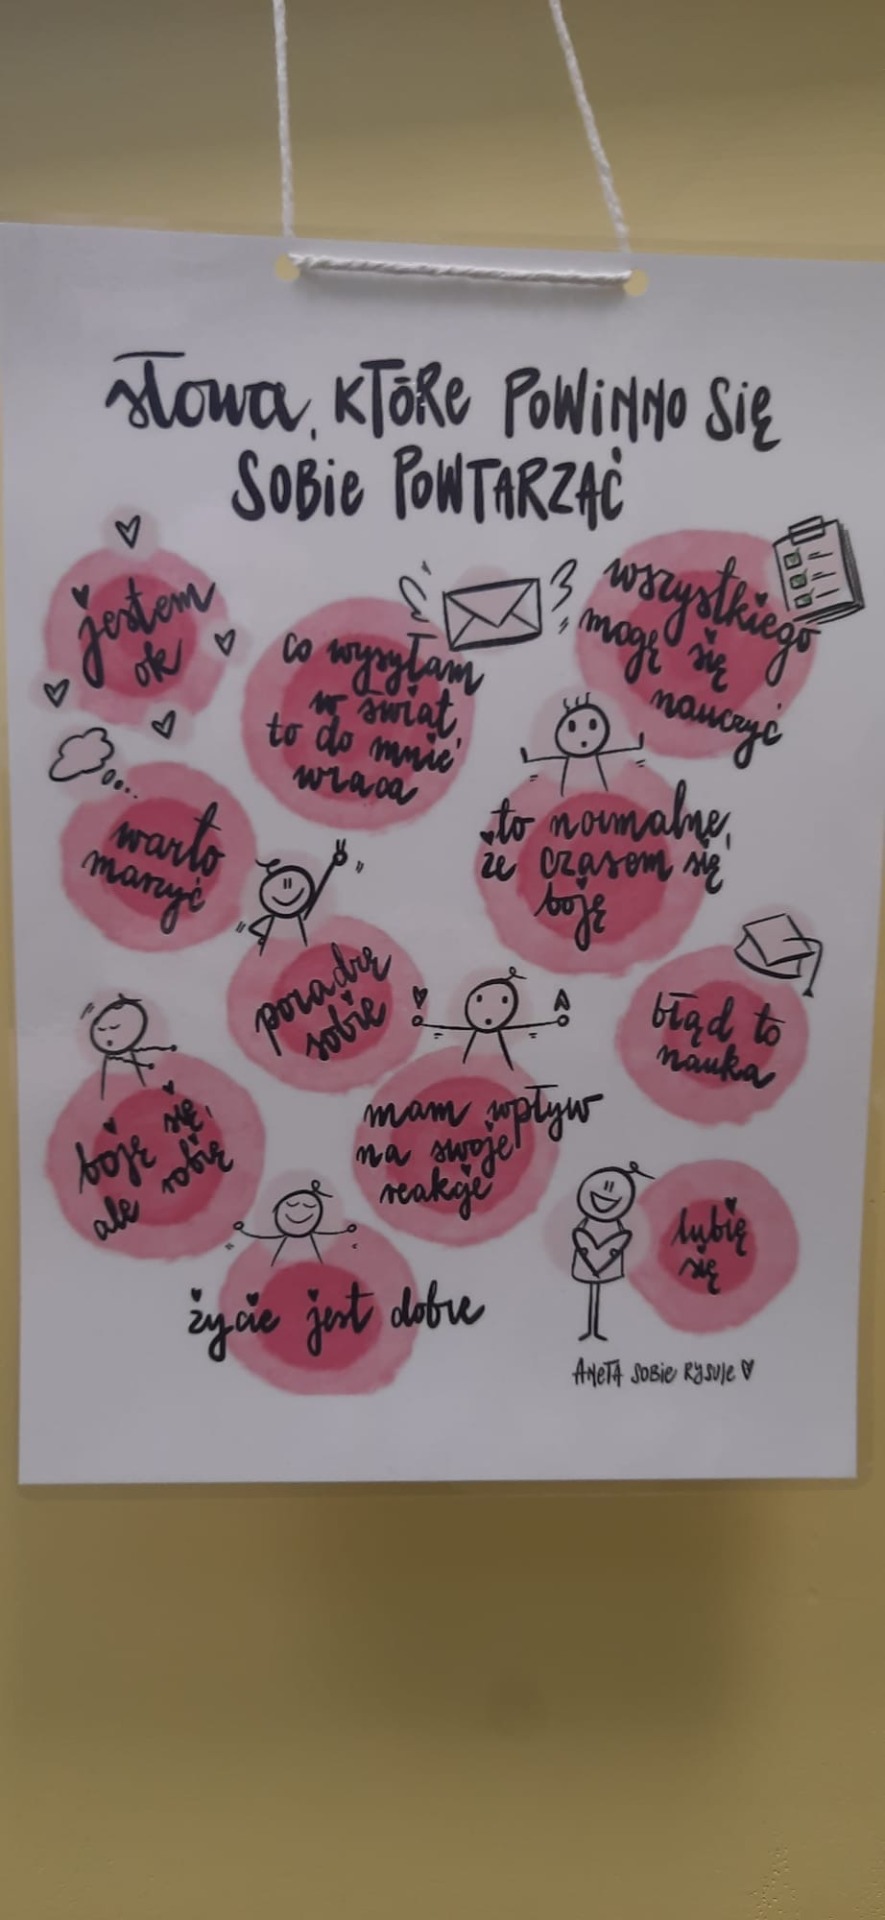 słowa, KTÓRE POWiNNO Się
SOBie POWTARZAĆ
jestem
ok
co wysyłam
w świat
to do mnie
wraca
wszystkiego
mogę się
nauczyć
warto
marzyć
to normalne,
że czasem się
boję
poradzę
sobie
błąd to
nauka
boję się,
ale robię
mam wpływ
na swoje
reakcje
życie jest dobre
lubię
się
ANeTA SOBie RYSUJe